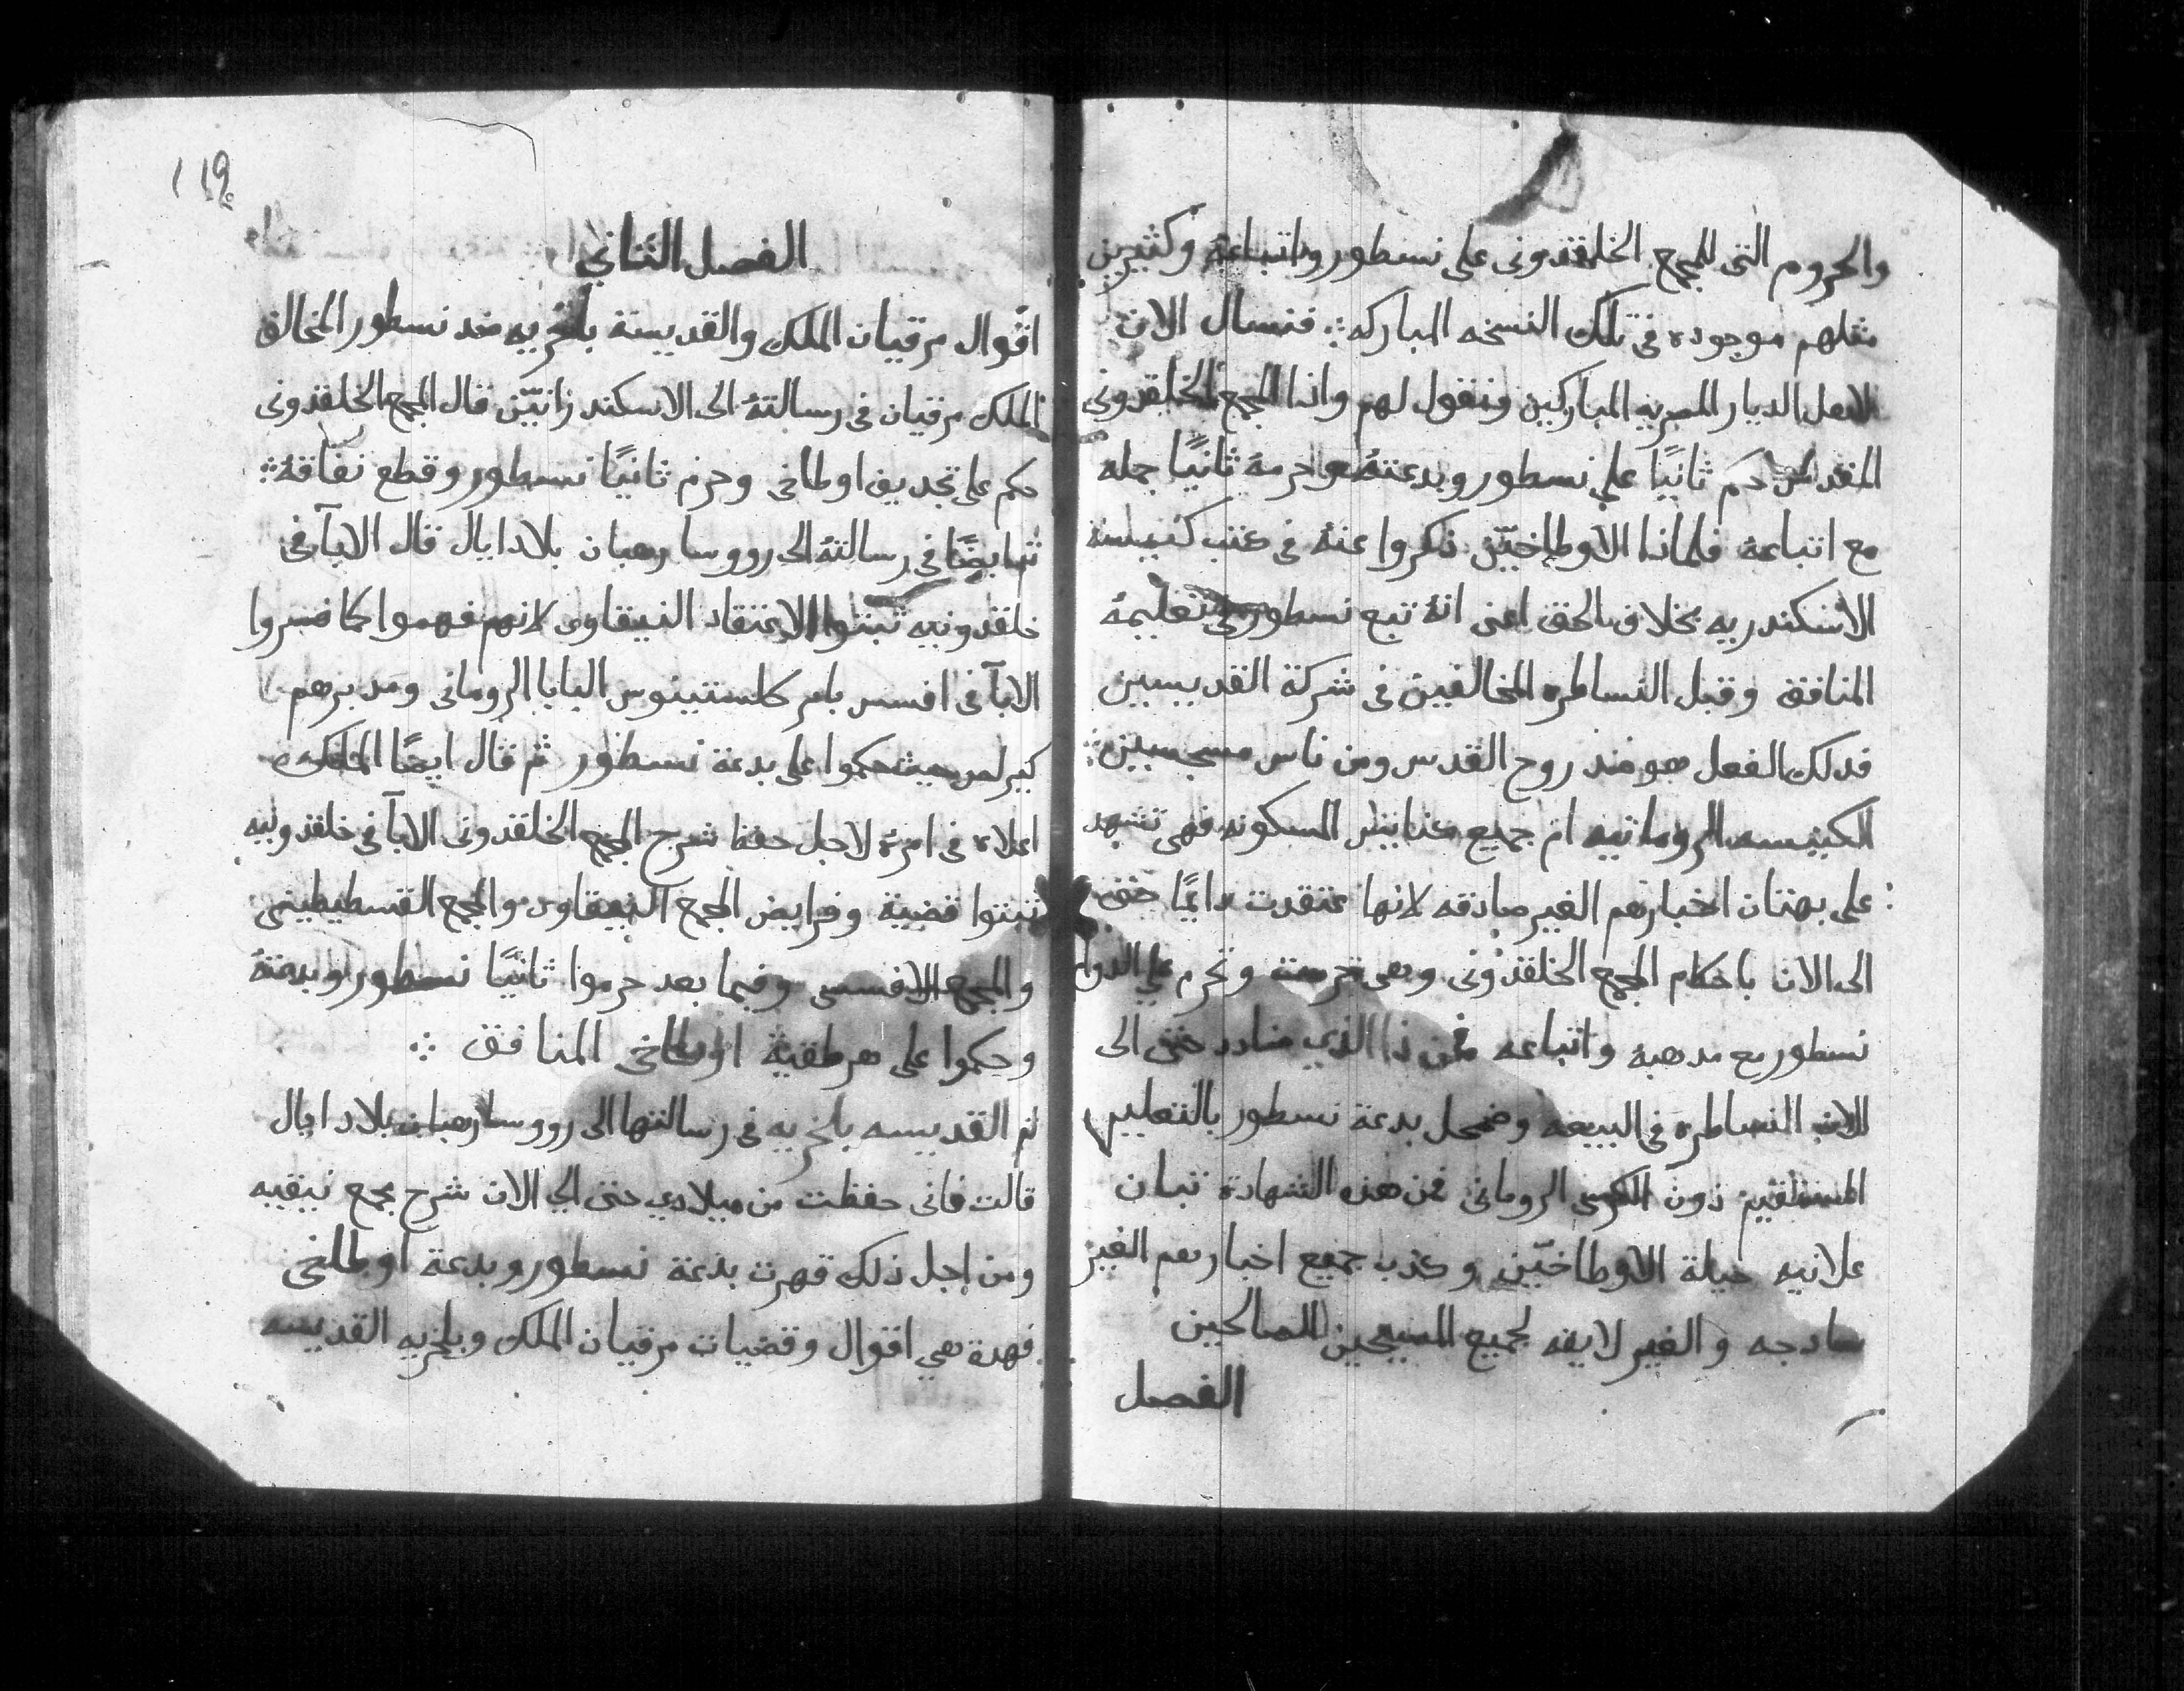 والحروم التى للمجمع الخلقدونى على نسطور واتباعهٔ وكثيرين
مثلهم موجوده فى تلك النسخه المباركه ∴ فنسال الان
لاهل الديار المصريه المباركين ونقول لهم واذا المجمع الخلقدونى
المقدس حكم ثانيًا على نسطور وبدعتهٔ واحرمهٔ ثانيًا جمله
مع اتباعهٔ فلماذا الاوطاخيّن ذكروا عنهٔ فى كتب كنيسة
الاسكندريه بخلاف الحق اعنى انهٔ تبع نسطور فى تعليمهٔ
المنافق وقبل النساطره المخالفين فى شركة القديسين
فدلك الفعل هو ضد روح القدس ومن ناس مسجسين ∴
الكنيسه الرومانيه ام جميع كنايس المسكونه فهى تشهد
على بهتان اخبارهم الغير صادقه لانها عتقدت دايمًا حتى
الى الان باحكام المجمع الخلقدونى وهى حرمت وتحرم على الدوام
نسطور مع مدهبهٔ واتباعهٔ فمن ذا الذي ضادد حتى الى
الان النساطره فى البيعه وضمحل بدعة نسطور بالتعليم
المستقيم دون الكرسى الرومانى فمن هذه الشهادة تبان
علانيه حيلة الاوطاخيّن وكذب جميع اخبارهم الغير
سادجه والغير لايقه لجميع المسيحين الصالحين
الفصل
119
الفصل الثاني
اقوال مرقيان الملك والقديسة بلخريه ضد نسطور المخالف
الملك مرقيان فى رسالتهٔ الى الاسكندرانيّن قال المجمع الخلقدونى
حكم على تجديف اوطاخى وحرم ثانيًا نسطور وقطع نفاقهٔ ∴
ثم ايضًا فى رسالتهٔ الى رووسا رهبان بلاد ايال قال الابآ فى
خلقدونيه ثبتوا الاعتقاد النيقاوى لانهم فهموا كما فسروا
الابآ فى افسس بامر كلستينوس البابا الرومانى ومدبرهم
كيرلس حيث حكموا على بدعة نسطور ثم قال ايضًا الملك
اعلاه فى امره لاجل حفظ شرح المجمع الخلقدونى الابآ فى خلقدونيه
ثبتوا قضية وفرايض المجمع النيقاوى والمجمع القسطيطينى
والمجمع الافسسى وفيما بعد حرموا ثانيًا نسطور وبدعتهٔ
وحكموا على هرطقية اوطاخى المنافق ∴
ثم القديسه بلخريه فى رسالتها الى رووسا رهبان بلاد ايال
قالت فانى حفظت من ميلادي حتى الي الان شرح مجمع نيقيه
ومن اجل ذلك قهرت بدعة نسطور وبدعة اوطاخى
فهدة هي اقوال وقضيات مرقيان الملك وبلخريه القديسه